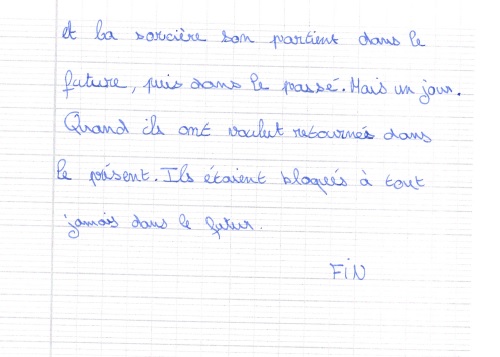 et la sorcière son partient dans le
future, puis dans le passé. Mais un jour.
Quand ils ont voulut retournés dans
le présent. Ils étaient bloqués à tout
jamais dans le futur.
FiN